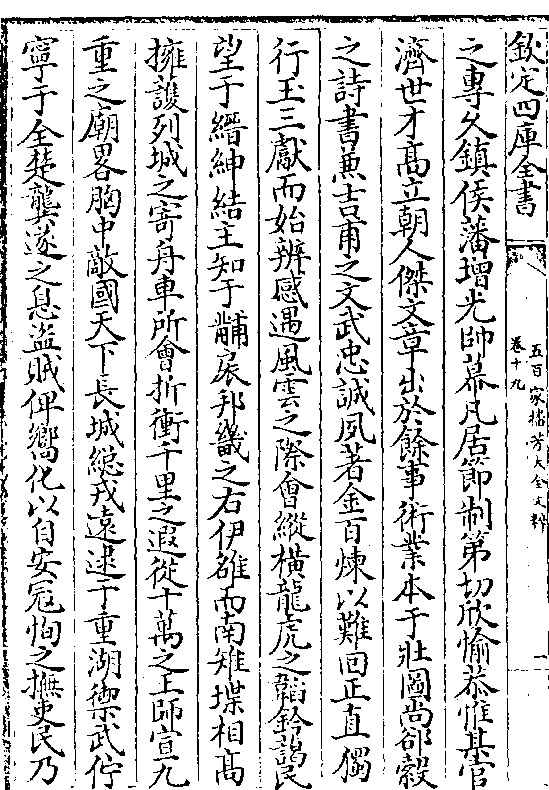 欽定四庫全書
五百家播芳大全文粹
卷十九
之專久鎮侯藩增光帥幕凡居節制第切欣愉恭惟某官
濟世才高立朝人傑文章出於餘事術業本于壯圖尚郤縠
之詩書兼吉甫之文武忠誠夙著金百煉以難回正直獨
行玉三獻而始辨感遇風雲之際會縱橫龍虎之韜鈐藹民
望于縉紳結主知于黼扆邦畿之右伊雒而南雉堞相高
擁護列城之寄舟車所會折衝千里之遐從十萬之王師宣九
重之廟畧胸中敵國天下長城總戎遠逮于重湖禦武佇
寧于全楚龔遂之息盜賊俾嚮化以自安冦恂之撫吏民乃